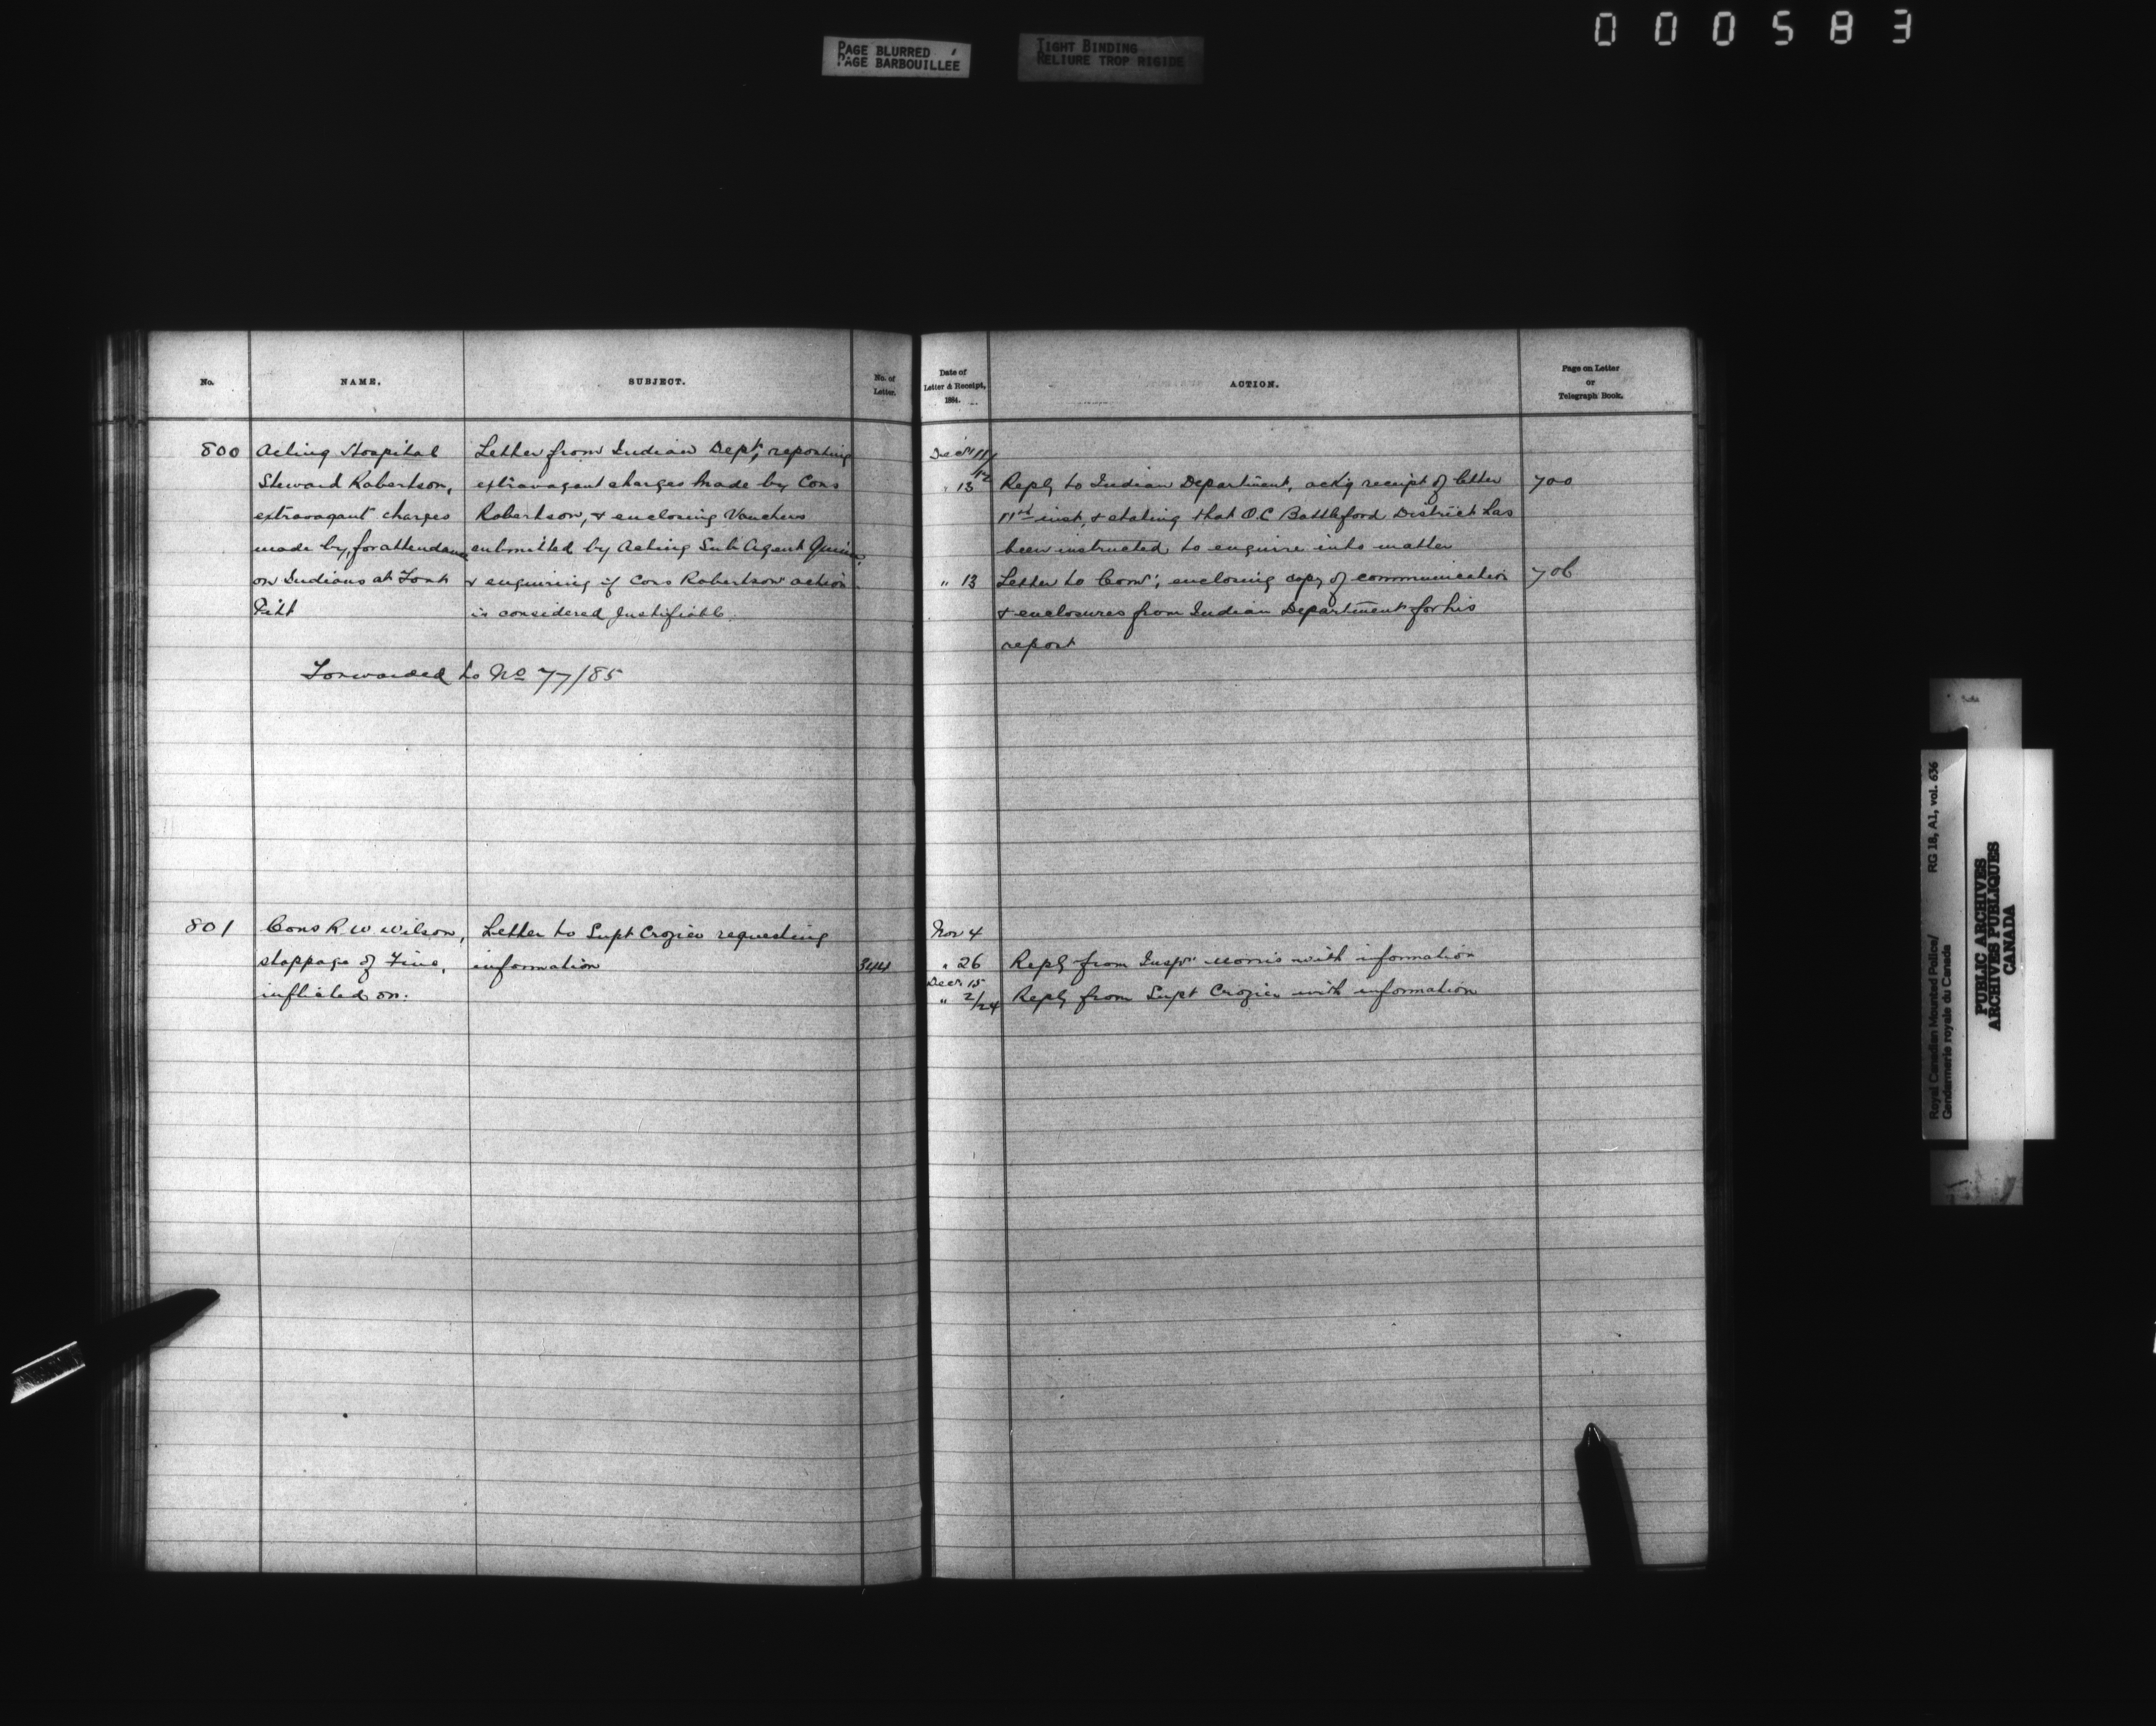 000583
PAGE BLURRED
PAGE BARBOUILLEE
TIGHT BINDING
RELIURE TROP RIGIDE
No.
NAME.
SUBJECT.
No. of
Letter.
800
Acting Hospital
Steward Robertson,
extravagant charges
made by, for attendance
on Indians at Fort
Pitt
Letter from Indian Dept, reporting
extravagant charges made by Cons
Robertson, & enclosing Vouchers
submitted by Acting Sub Agent Quinn
& enquiring if Cons Robertson action
is considered Justifiable.
Forwarded to No 77/85
801
Cons R W Wilson,
stoppage of Fine,
inflicted on.
Letter to Supt Crozier requesting
information
344
Date of
Letter & Receipt,
1884.
ACTION.
Page on Letter
or
Telegraph Book.
Decr 11/12
" 13 Reply to Indian Department, ackg receipt of letter 700
11th inst, & stating that O.C Battleford District has
been instructed to enquire into matter
" 13 Letter to Comr, enclosing copy of communication 706
& enclosures from Indian Department for his
report
Nov 4
" 26 Reply from Inspr Morris with information
Decr 15
" 2/24 Reply from Supt Crozier with information
Royal Canadian Mounted Police/ RG 18, A1, vol. 636
Gendarmerie royale du Canada
PUBLIC ARCHIVES
ARCHIVES PUBLIQUES
CANADA